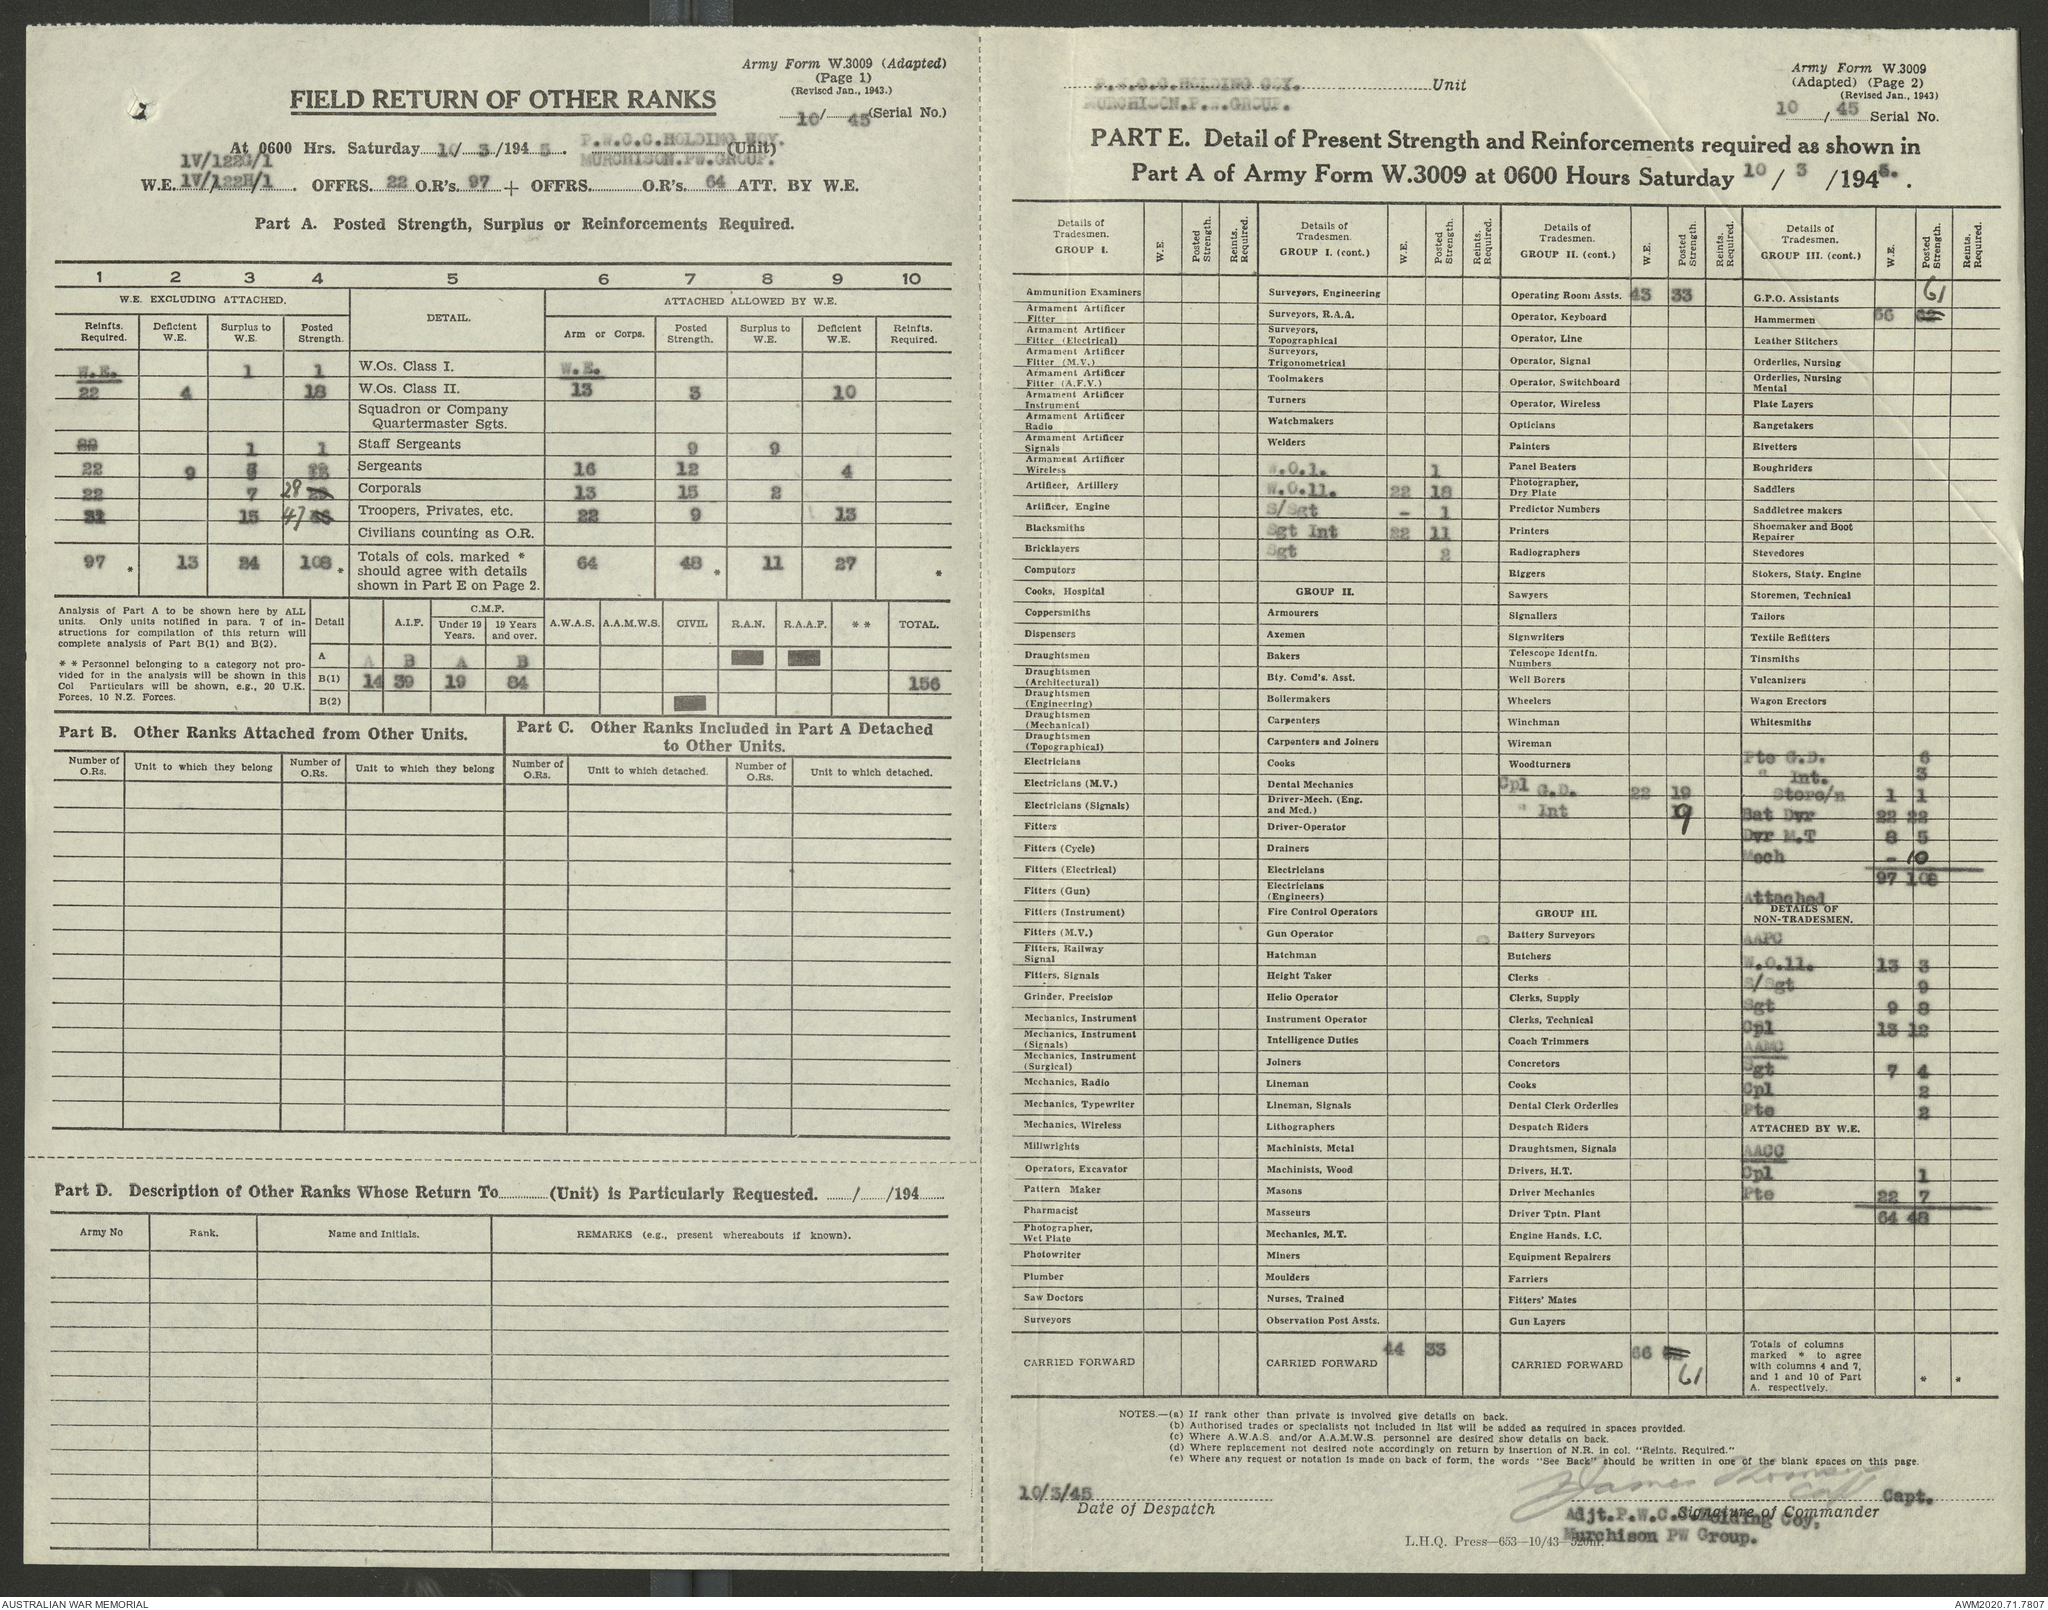 Army Form W.3009 (Adapted)
(Page 1)
(Revised Jan., 1943.)
10/ 45 (Serial No.)
FIELD RETURN OF OTHER RANKS
At 0600 Hrs. Saturday 10/ 3 /194 5. P.W.C.C.HOLDING COY. (Unit)
MURCHISON.PW.GROUP.
1V/122G/1
W.E. 1V/122H/1. OFFRS. 22 O.R's. 97 + OFFRS. O.R's. 64 ATT. BY W.E.
Part A. Posted Strength, Surplus or Reinforcements Required.
1 2 3 4 5 6 7 8 9 10
W.E. EXCLUDING ATTACHED. DETAIL. ATTACHED ALLOWED BY W.E.
Reinfts. Required. Deficient W.E. Surplus to W.E. Posted Strength. Arm or Corps. Posted Strength. Surplus to W.E. Deficient W.E. Reinfts. Required.
W.E. 1 1 W.Os. Class I. W.E.
22 4 18 W.Os. Class II. 13 3 10
Squadron or Company
Quartermaster Sgts.
1 1 Staff Sergeants 9 9
22 9 Sergeants 16 12 4
22 7 28 Corporals 13 15 2
31 15 47 Troopers, Privates, etc. 22 9 13
Civilians counting as O.R.
97 * 13 24 108 * Totals of cols. marked * should agree with details shown in Part E on Page 2. 64 48 * 11 27 *
Analysis of Part A to be shown here by ALL units. Only units notified in para. 7 of instructions for compilation of this return will complete analysis of Part B(1) and B(2).
* * Personnel belonging to a category not provided for in the analysis will be shown in this Col Particulars will be shown, e.g., 20 U.K. Forces, 10 N.Z. Forces.
Detail A.I.F. C.M.F. Under 19 Years. 19 Years and over. A.W.A.S. A.A.M.W.S. CIVIL R.A.N. R.A.A.F. * * TOTAL.
A A B A B
B(1) 14 39 19 84 156
B(2)
Part B. Other Ranks Attached from Other Units.
Part C. Other Ranks Included in Part A Detached to Other Units.
Number of O.Rs. Unit to which they belong Number of O.Rs. Unit to which they belong Number of O.Rs. Unit to which detached. Number of O.Rs. Unit to which detached.
Part D. Description of Other Ranks Whose Return To (Unit) is Particularly Requested. / /194
Army No Rank. Name and Initials. REMARKS (e.g., present whereabouts if known).
P.W.C.C.HOLDING COY. Unit
MURCHISON.P.W.GROUP.
Army Form W.3009
(Adapted) (Page 2)
(Revised Jan., 1943)
10 / 45 Serial No.
PART E. Detail of Present Strength and Reinforcements required as shown in
Part A of Army Form W.3009 at 0600 Hours Saturday 10 / 3 /1945.
Details of Tradesmen. GROUP I. W.E. Posted Strength. Reints. Required.
Ammunition Examiners
Armament Artificer Fitter
Armament Artificer Fitter (Electrical)
Armament Artificer Fitter (M.V.)
Armament Artificer Fitter (A.F.V.)
Armament Artificer Instrument
Armament Artificer Radio
Armament Artificer Signals
Armament Artificer Wireless
Artificer, Artillery
Artificer, Engine
Blacksmiths
Bricklayers
Computors
Cooks, Hospital
Coppersmiths
Dispensers
Draughtsmen
Draughtsmen (Architectural)
Draughtsmen (Engineering)
Draughtsmen (Mechanical)
Draughtsmen (Topographical)
Electricians
Electricians (M.V.)
Electricians (Signals)
Fitters
Fitters (Cycle)
Fitters (Electrical)
Fitters (Gun)
Fitters (Instrument)
Fitters (M.V.)
Fitters, Railway Signal
Fitters, Signals
Grinder, Precision
Mechanics, Instrument
Mechanics, Instrument (Signals)
Mechanics, Instrument (Surgical)
Mechanics, Radio
Mechanics, Typewriter
Mechanics, Wireless
Millwrights
Operators, Excavator
Pattern Maker
Pharmacist
Photographer, Wet Plate
Photowriter
Plumber
Saw Doctors
Surveyors
CARRIED FORWARD
Details of Tradesmen. GROUP I. (cont.) W.E. Posted Strength. Reints. Required.
Surveyors, Engineering
Surveyors, R.A.A.
Surveyors, Topographical
Surveyors, Trigonometrical
Toolmakers
Turners
Watchmakers
Welders
W.O.1. 1
W.O.11. 22 18
S/Sgt - 1
Sgt Int 22 11
Sgt 2
GROUP II.
Armourers
Axemen
Bakers
Bty. Comd's. Asst.
Boilermakers
Carpenters
Carpenters and Joiners
Cooks
Dental Mechanics
Driver-Mech. (Eng. and Med.)
Driver-Operator
Drainers
Electricians
Electricians (Engineers)
Fire Control Operators
Gun Operator
Hatchman
Height Taker
Helio Operator
Instrument Operator
Intelligence Duties
Joiners
Lineman
Lineman, Signals
Lithographers
Machinists, Metal
Machinists, Wood
Masons
Masseurs
Mechanics, M.T.
Miners
Moulders
Nurses, Trained
Observation Post Assts.
CARRIED FORWARD 44 33
Details of Tradesmen. GROUP II. (cont.) W.E. Posted Strength. Reints. Required.
Operating Room Assts. 43 33
Operator, Keyboard
Operator, Line
Operator, Signal
Operator, Switchboard
Operator, Wireless
Opticians
Painters
Panel Beaters
Photographer, Dry Plate
Predictor Numbers
Printers
Radiographers
Riggers
Sawyers
Signallers
Signwriters
Telescope Identfn. Numbers
Well Borers
Wheelers
Winchman
Wireman
Woodturners
Cpl G.D. 22 19
" Int 9
GROUP III.
Battery Surveyors
Butchers
Clerks
Clerks, Supply
Clerks, Technical
Coach Trimmers
Concretors
Cooks
Dental Clerk Orderlies
Despatch Riders
Draughtsmen, Signals
Drivers, H.T.
Driver Mechanics
Driver Tptn. Plant
Engine Hands, I.C.
Equipment Repairers
Farriers
Fitters' Mates
Gun Layers
CARRIED FORWARD 66 61
Details of Tradesmen. GROUP III. (cont.) W.E. Posted Strength. Reints. Required.
G.P.O. Assistants 61
Hammermen 66 62
Leather Stitchers
Orderlies, Nursing
Orderlies, Nursing Mental
Plate Layers
Rangetakers
Rivetters
Roughriders
Saddlers
Saddletree makers
Shoemaker and Boot Repairer
Stevedores
Stokers, Staty. Engine
Storemen, Technical
Tailors
Textile Refitters
Tinsmiths
Vulcanizers
Wagon Erectors
Whitesmiths
Pte G.D. 6
" Int. 3
Store/n 1 1
Bat Dvr 22 22
Dvr M.T 8 5
Mech - 10
97 108
Attached
DETAILS OF NON-TRADESMEN.
AAPC
W.O.11. 13 3
S/Sgt 9
Sgt 9 8
Cpl 13 12
AAMC
Sgt 7 4
Cpl 2
Pte 2
ATTACHED BY W.E.
AACC
Cpl 1
Pte 22 7
64 48
Totals of columns marked * to agree with columns 4 and 7, and 1 and 10 of Part A. respectively. * *
NOTES.—(a) If rank other than private is involved give details on back.
(b) Authorised trades or specialists not included in list will be added as required in spaces provided.
(c) Where A.W.A.S. and/or A.A.M.W.S. personnel are desired show details on back.
(d) Where replacement not desired note accordingly on return by insertion of N.R. in col. "Reints. Required."
(e) Where any request or notation is made on back of form, the words "See Back" should be written in one of the blank spaces on this page.
10/3/45
Date of Despatch
James Capt.
Signature of Commander
Adjt.P.W.C.C.Holding Coy,
Murchison PW Group.
L.H.Q. Press—653—10/43
AUSTRALIAN WAR MEMORIAL
AWM2020.71.7807